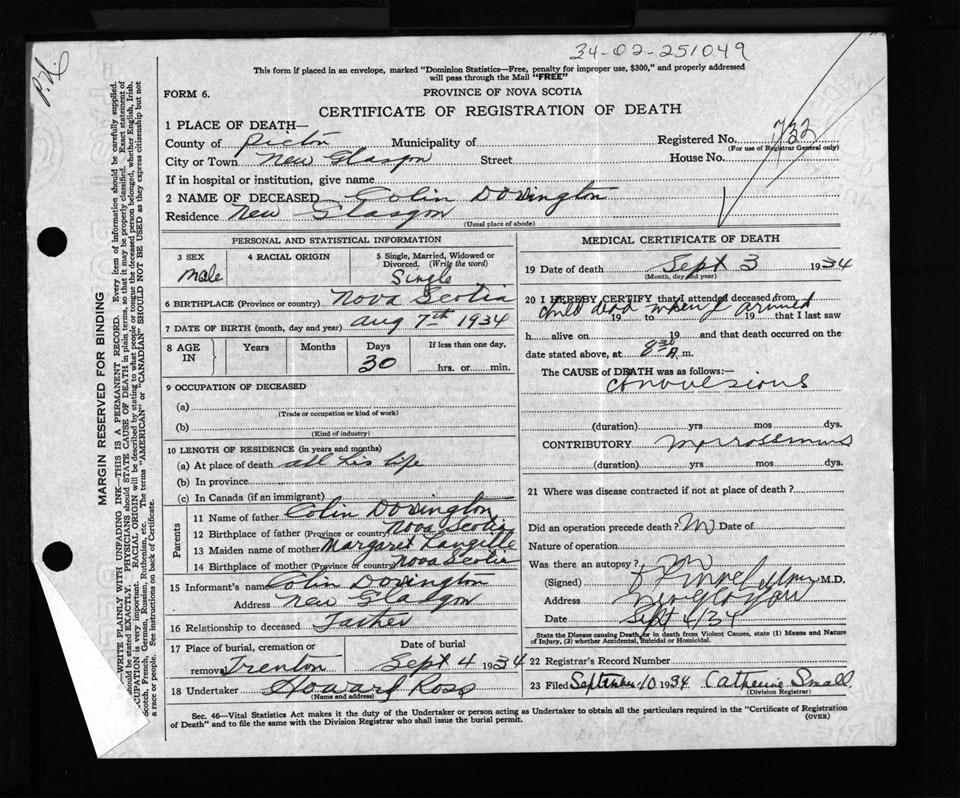 34-02-251049
This form if placed in an envelope, marked "Dominion Statistics—Free, penalty for improper use, $300," and properly addressed
will pass through the Mail "FREE"
FORM 6.
PROVINCE OF NOVA SCOTIA
CERTIFICATE OF REGISTRATION OF DEATH
1 PLACE OF DEATH—
County of Pictou Municipality of Registered No. 732
(For use of Registrar General only)
City or Town New Glasgow Street House No.
If in hospital or institution, give name
2 NAME OF DECEASED Colin Dorrington
Residence New Glasgow
(Usual place of abode)
PERSONAL AND STATISTICAL INFORMATION
3 SEX 4 RACIAL ORIGIN 5 Single, Married, Widowed or Divorced. (Write the word)
Male Single
6 BIRTHPLACE (Province or country) Nova Scotia
7 DATE OF BIRTH (month, day and year) Aug 7th 1934
8 AGE IN Years Months Days If less than one day,
30 hrs. or min.
9 OCCUPATION OF DECEASED
(a)
(Trade or occupation or kind of work)
(b)
(Kind of industry)
10 LENGTH OF RESIDENCE (in years and months)
(a) At place of death all his life
(b) In province
(c) In Canada (if an immigrant)
Parents
11 Name of father Colin Dorrington
12 Birthplace of father (Province or country) Nova Scotia
13 Maiden name of mother Margaret Langille
14 Birthplace of mother (Province or country) Nova Scotia
15 Informant's name Colin Dorrington
Address New Glasgow
16 Relationship to deceased Father
17 Place of burial, cremation or Date of burial
removal Trenton Sept 4 1934
18 Undertaker Howard Ross
(Name and address)
MEDICAL CERTIFICATE OF DEATH
19 Date of death Sept 3 1934
(Month, day and year)
20 I HEREBY CERTIFY that I attended deceased from
child dead when I arrived
19 to 19 that I last saw
h alive on 19 and that death occurred on the
date stated above, at 8 30 A. m.
The CAUSE of DEATH was as follows:—
convulsions
(duration) yrs mos dys.
CONTRIBUTORY
(duration) yrs mos dys.
21 Where was disease contracted if not at place of death?
Did an operation precede death? No Date of
Nature of operation
Was there an autopsy? No
(Signed) M.D.
Address New Glasgow
Date Sept 4/34
State the Disease causing Death, or in death from Violent Causes, state (1) Means and Nature
of Injury, (2) whether Accidental, Suicidal or Homicidal.
22 Registrar's Record Number
23 Filed September 10 1934 Catherine Small
(Division Registrar)
Sec. 46—Vital Statistics Act makes it the duty of the Undertaker or person acting as Undertaker to obtain all the particulars required in the "Certificate of Registration
of Death" and to file the same with the Division Registrar who shall issue the burial permit.
(OVER)
MARGIN RESERVED FOR BINDING
—WRITE PLAINLY WITH UNFADING INK—THIS IS A PERMANENT RECORD. Every item of information should be carefully supplied.
should be stated EXACTLY. PHYSICIANS should STATE CAUSE OF DEATH in plain terms, so that it may be properly classified. Exact statement of
CUPATION is very important. RACIAL ORIGIN will be described by stating to what people or tongue the deceased person belonged, whether English, Irish,
Scotch, French, German, Russian, Ruthenian, etc. The terms "AMERICAN" or "CANADIAN" SHOULD NOT BE USED as they express citizenship but not
a race or people. See instructions on back of Certificate.